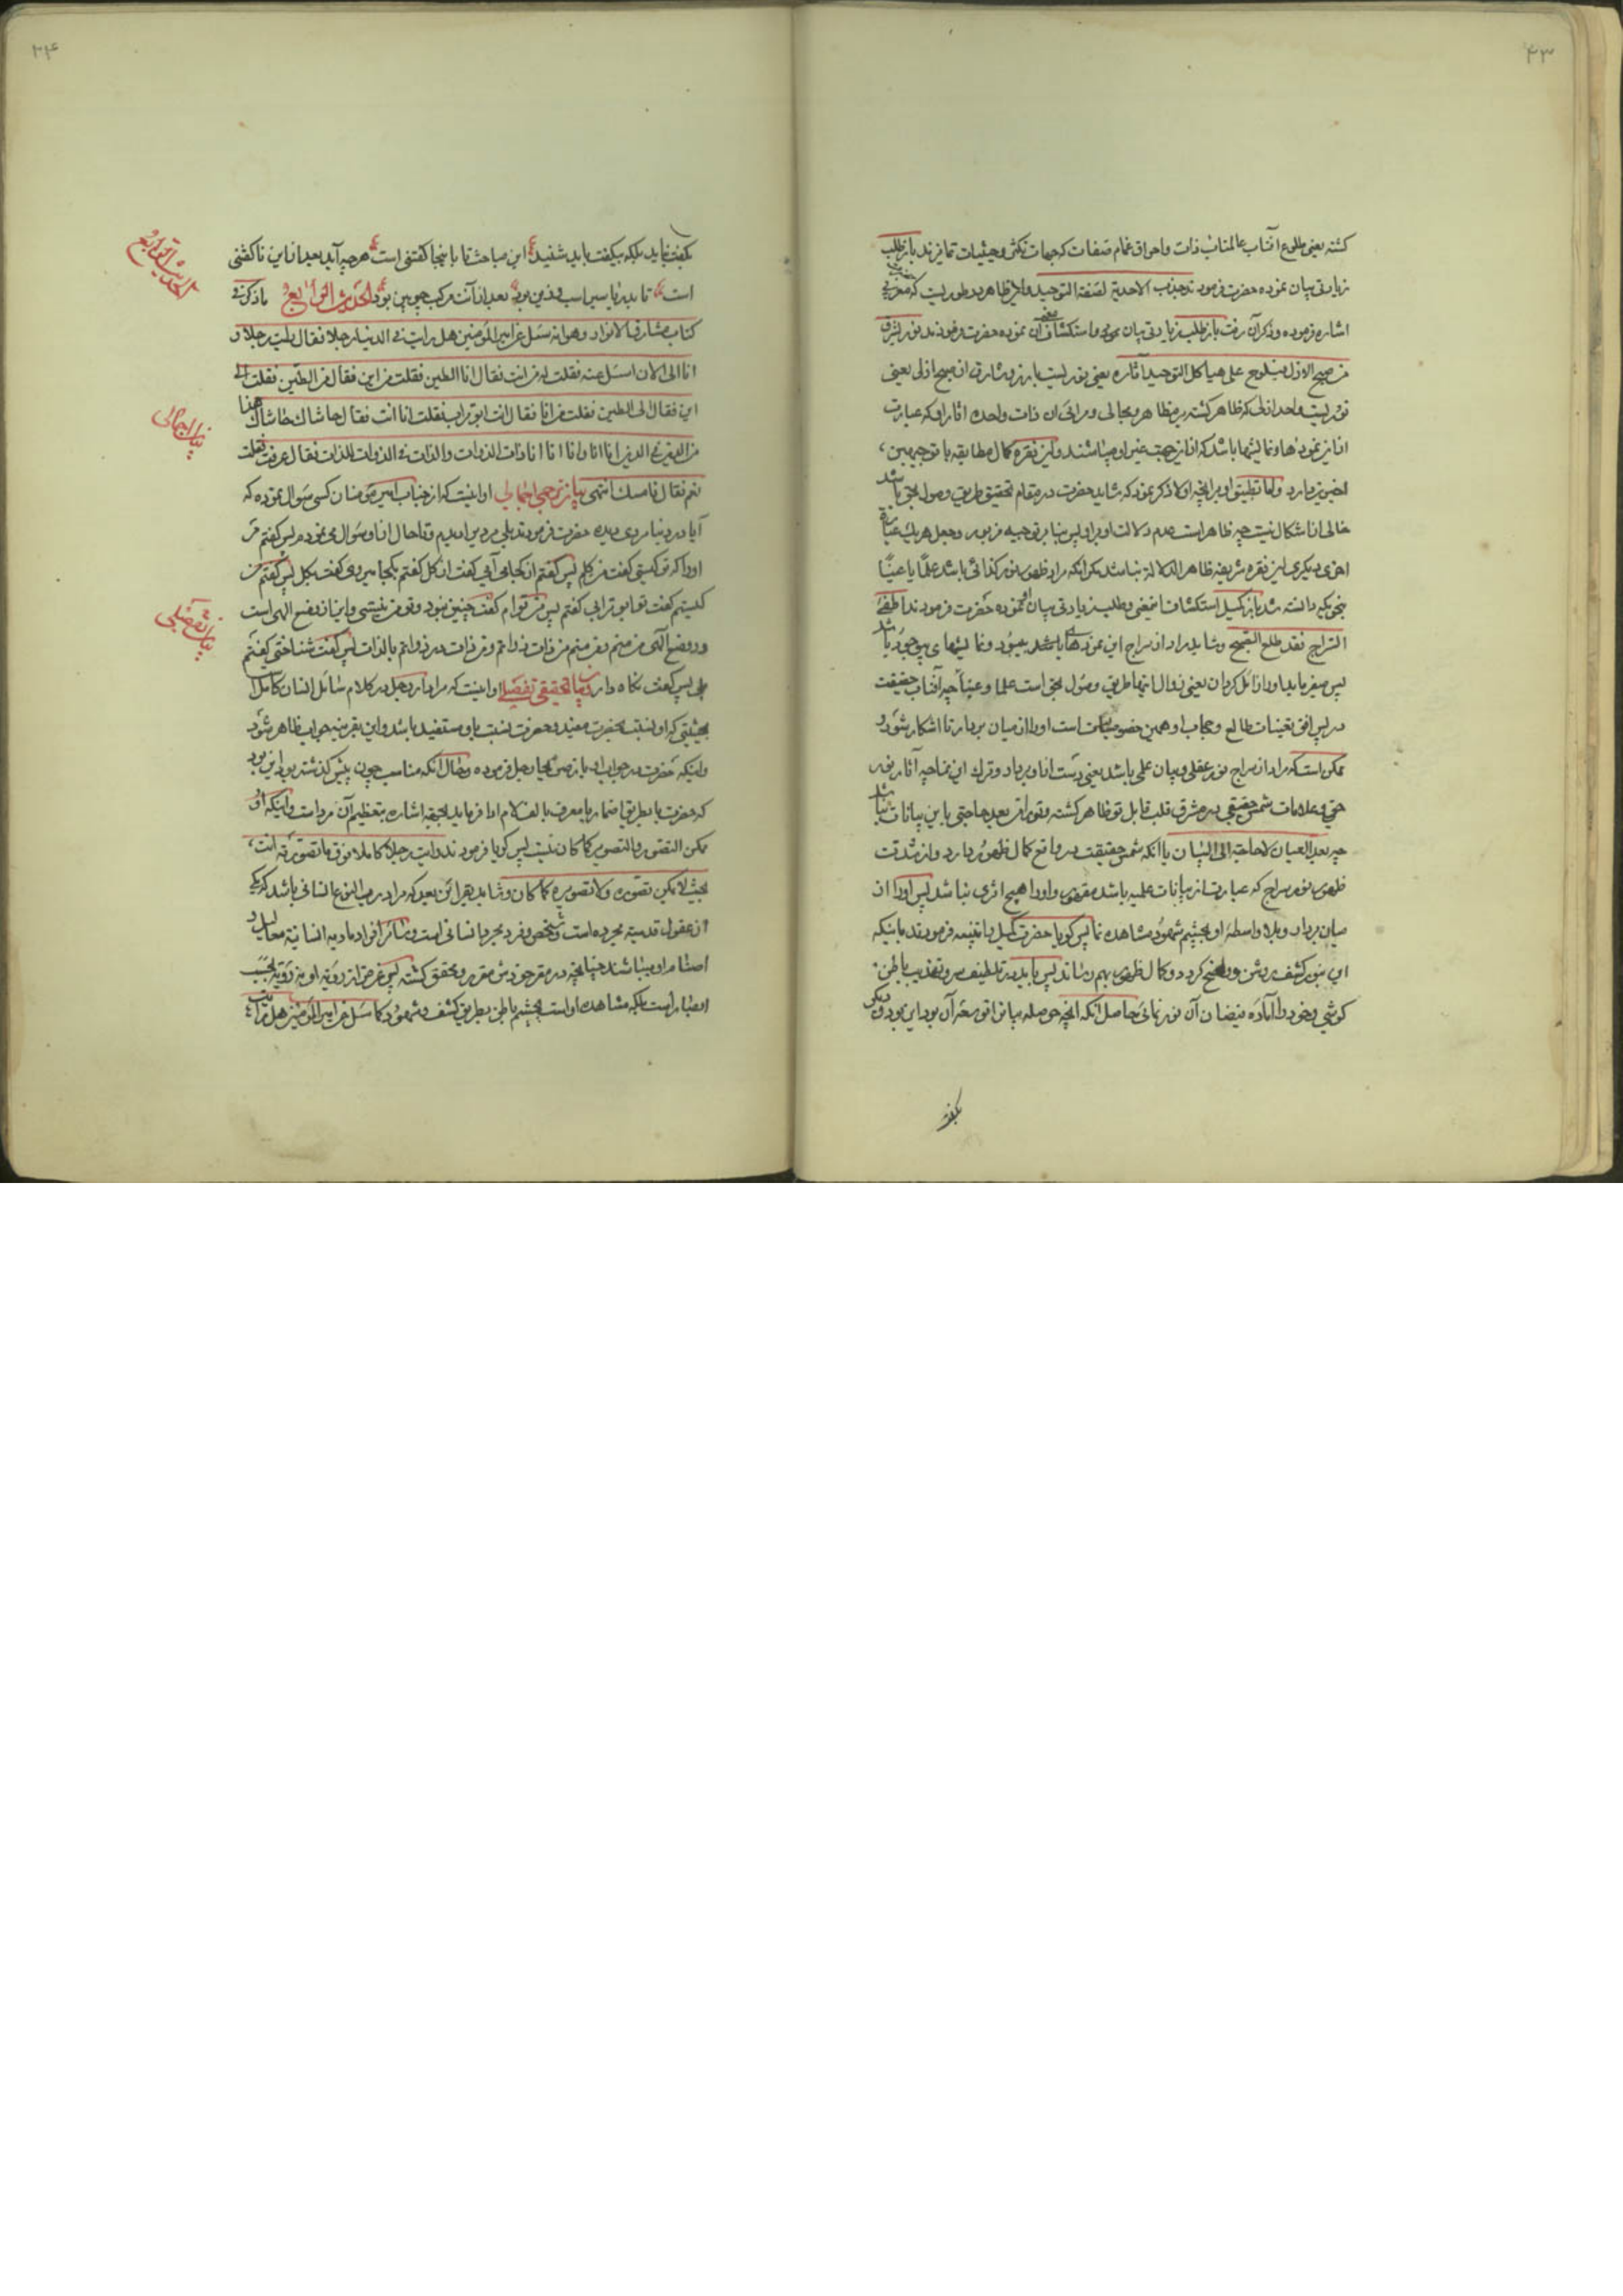 ۴۳
كشته یعنی طلوع آفتاب عالمتاب ذات واحراق غمام صفات كه جهات تكثر وحیثیات تمایزند باز طلب
زیادتی بیان نموده حضرت فرمودند جذب الاحدیة لصفة التوحید واین ظاهر بطوریست كه
اشاره فرموده وذكر آن رفت باز طلب زیادتی بیان نموده واستكشاف آن نموده حضرت فرمودند نور یشرق
من صبح الازل فیلوح علی هیاكل التوحید آثاره یعنی نوریست بارز وشارق از صبح ازلی یعنی
نوریست واحد ازلی كه ظاهر كشته بر مظاهر ومجالی ومرائی آن ذات واحده آثار او كه عبارت
از این نمودها ونمایشها باشد كه از این جهت غیر او میباشند واین فقره كمال مطابقه با توجیهین
اخیرین دارد واما تطبیق او بر آنچه اولا ذكر نمود كه شاید حضرت در مقام تحقیق طریق وصول بحق باشد
خالی از اشكال نیست چه ظاهر است عدم دلالت او بر او پس بنا بر توجیه مزبور وجعل هر یك عبارة
اخری دیگری این فقره شریفه ظاهر الدلالة نباشد مگر آنكه مراد ظهور نور كذائی باشد علماً یا عیناً
بنحویكه دانسته شد باز كمیل استكشاف معنی وطلب زیادتی بیان نموده حضرت فرمودند اطفئ
السراج فقد طلع الصبح وشاید مراد از سراج این نمودهای بیبود ونمایشهای بیوجود باشد
پس میفرماید اورا زائل گردان یعنی زوال اینها طریق وصول بحق است علما وعیناً چه آفتاب حقیقت
در پس افق تعینات طالع وحجاب او همین خصوصیات است اورا از میان بردار تا آشكار شود و
ممكن است كه مراد از سراج نور عقلی وبیان علمی باشد یعنی دست از او بردار وترك این نما چه آثار نور
حق وعلامات شمس حقیقی در مشرق قلب قابل تو ظاهر كشته وتورا دیگر بعد حاجتی باین بیانات نباشد
چه بعد العیان لاحاجة الی البیان یا آنكه شمس حقیقت در واقع كمال ظهور دارد واز شدت
ظهور نور سراج كه عبارت از بیانات علمیه باشد مقهور واورا هیچ اثری نباشد پس اورا از
میان بردار وبلا واسطه او بچشم شهود مشاهده نما پس گویا حضرت كمیل را تنبیه فرمودند باینكه
این بنور كشف روشن وواضح كردد وكمال ظهور بهم رساند پس باید در تلطیف سر وتهذیب باطن
كوشی وخود را آماده فیضان آن نور نمائی حاصل آنكه آنچه حوصله بیان او وسعه آن بود این بود ودیگر
بگفت
۴۴
بگفت نباید بلكه بیگفت باید شنید ع این مباحث تا باینجا گفتنی است ع هرچه آید بعد از این ناگفتنی
است ع تا بدریا سیر اسب وزین بود ع بعد از آنت مركب چوبین بود الحدیث الرابع ما ذكر فی
كتاب مشارق الانوار وهو انه سئل عن امیر المؤمنین هل رایت فی الدنیا رجلا فقال رایت رجلا و
انا الی الان اسئل عنه فقلت له من انت فقال انا الطین فقلت من این فقال من الطین فقلت الی
این فقال الی الطین فقلت من انا فقال انت ابو تراب فقلت انا انت فقال حاشاك حاشاك هذا
من الدین فی الدین انا انا وانا انا انا ذات الذوات والذات فی الذوات للذات فقال عرفت فقلت
نعم فقال فامسك انتهی بیان ترجمی اجمالی او اینست كه از جناب امیر مؤمنان كسی سؤال نموده كه
آیا در دنیا مردی دیده حضرت فرمودند بلی مردیرا دیدم وتا حال از او سؤال می نمودم پس گفتم من
اورا كه تو كیستی گفت من گلم پس گفتم از كجا می آیی گفت از گل گفتم بكجا میروی گفت بگل پس گفتم من
كیستم گفت تو ابو ترابی گفتم پس من توام گفت چنین نبود وتو من نیستی واین از وضع الهی است
ودر وضع الهی من منم ومن منم من ذات ذواتم ومن ذات در ذواتم بالذات پس گفت شناختی گفتم
بلی پس گفت نگاه دار بیان تحقیقی تفصیلی او اینست كه مراد از رجل در كلام سائل انسان كامل
بحیثیتی كه او نسبت بحضرت مفید وحضرت نسبت باو مستفید باشد واین بقرینه جواب ظاهر شود
واینكه حضرت در جواب او باز صریحا رجل فرموده وحال آنكه مناسب چون پیش گذشته بود این بود
كه حضرت یا بطریق اضمار یا معرف بالف لام ادا فرماید بجهة اشاره بتعظیم آن مرد است واینكه او
ممكن التصور والتصویر كما كان نیست پس گویا فرمودند رایت رجلا كاملا فوق ما تصورته انت
بحیث لا یمكن تصوره ولا تصویره كما كان وشاید بقراین بعید كه مراد رب النوع انسانی باشد كه یكی
از عقول قدسیه مجرده است وشخص وفرد مجرد انسانی است وسائر افراد مادیه انسانیة معالیل و
اصنام او میباشند چنانچه در مقر خودش مقرر ومحقق كشته پس غرض از رؤیة او نه رؤیة بحسب
ابصار است بلكه مشاهده او است بچشم باطن بطریق كشف وشهود كما سئل عن امیر المؤمنین هل رایت
الحدیث الرابع
بیان اجمالی
بیان تفصیلی